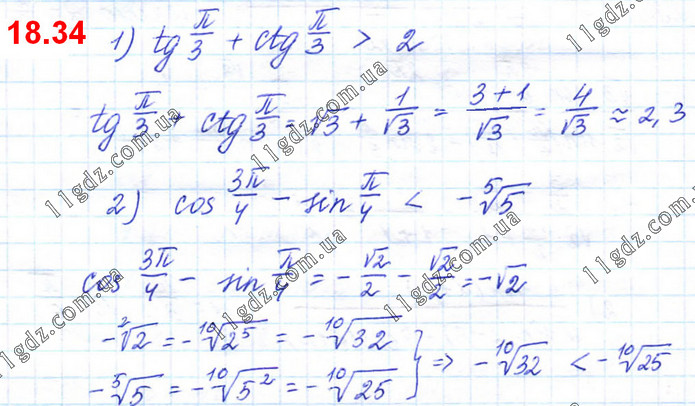 18.34
1) tg π/3 + ctg π/3 > 2
tg π/3 + ctg π/3 = √3 + 1/√3 = (3+1)/√3 = 4/√3 ≈ 2,3
2) cos 3π/4 − sin π/4 < −⁵√5
cos 3π/4 − sin π/4 = −√2/2 − √2/2 = −√2
−²√2 = −¹⁰√2⁵ = −¹⁰√32
−⁵√5 = −¹⁰√5² = −¹⁰√25 } ⇒ −¹⁰√32 < −¹⁰√25
11gdz.com.ua
11gdz.com.ua
11gdz.com.ua
11gdz.com.ua
11gdz.com.ua
11gdz.com.ua